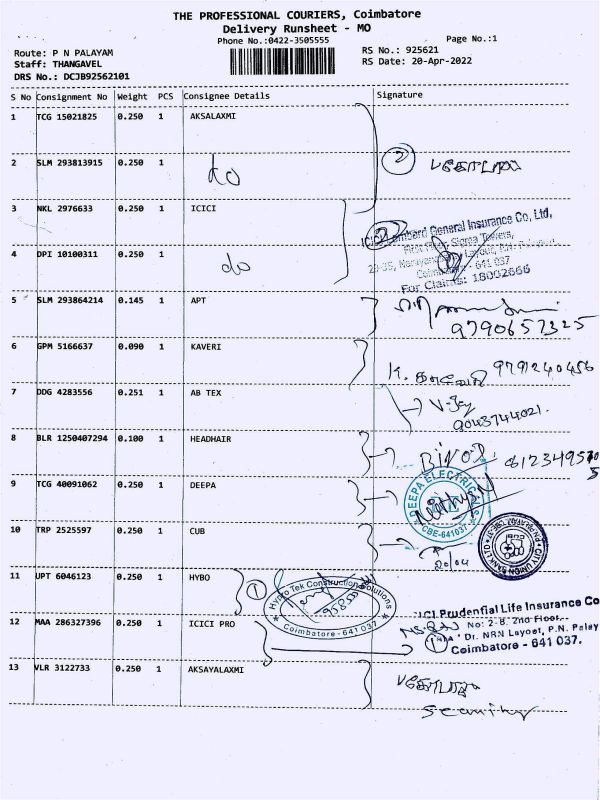 THE PROFESSIONAL COURIERS, Coimbatore
Delivery Runsheet - MO
Phone No.:0422-3505555
Page No.:1
Route: P N PALAYAM
RS No.: 925621
Staff: THANGAVEL
RS Date: 20-Apr-2022
DRS No.: DCJB92562101
S No Consignment No Weight PCS Consignee Details Signature
1 TCG 15021825 0.250 1 AKSALAXMI
2 SLM 293813915 0.250 1
do
2
3 NKL 2976633 0.250 1 ICICI
ICICI Lombard General Insurance Co, Ltd,
First Floor, Sigma Towers,
Layout, P.N.
4 DPI 10100311 0.250 1
do
641 037
For Claims: 18002666
5 SLM 293864214 0.145 1 APT
9790657325
6 GPM 5166637 0.090 1 KAVERI
K. காவேரி 9791240456
7 DDG 4283556 0.251 1 AB TEX
9043744021.
8 BLR 1250407294 0.100 1 HEADHAIR
9 TCG 40091062 0.250 1 DEEPA
DEEPA ELECTRICALS
CBE-641037
10 TRP 2525597 0.250 1 CUB
20/04
CITY UNION BANK LTD
11 UPT 6046123 0.250 1 HYBO
1
Hybro Tek Construction Solutions
Coimbatore - 641 037
12 MAA 286327396 0.250 1 ICICI PRO
ICI Prudential Life Insurance Co
No: 2-B, 2nd Floor,
1
Dr. NRN Layout, P.N. Palay
Coimbatore - 641 037.
13 VLR 3122733 0.250 1 AKSAYALAXMI
Security